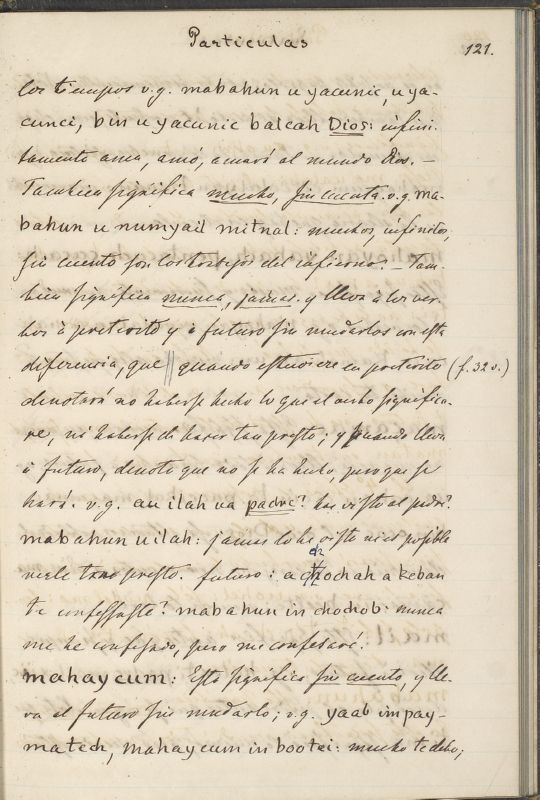 Particulas
121.
los tiempos v.g. mabahun u yacunic, u ya-
cunci, bin u yacunic balcah Dios: infini-
tamente ama, amó, amará al mundo Dios. —
Tambien significa mucho, sin cuenta. v.g. ma-
bahun u numyail mitnal: muchos, infinitos,
sin cuento son los trabajos del infierno. — Tam-
bien significa nunca, jamas. y lleva à los ver-
bos à preterito y à futuro sin mudarlos con esta
diferencia, que quando estuviere en preterito (f. 32 v.)
denotará no haberse hecho lo que el verbo significa-
re, ni haberse de hacer tan presto; y quando lleva
à futuro, denota que no se ha hecho, pero que se
hará. v.g. au ilah ua padre? has visto al padre?
mabahun uilah: jamas lo he visto ni es posible
verle tan presto. futuro: a chochah a keban
te confessaste? mabahun in chochob: nunca
me he confesado, pero me confesaré.
mahaycum: Esto significa sin cuento, y lle-
va al futuro sin mudarlo; v.g. yaab in pay-
matech, mahaycum in bootei: mucho te debo;